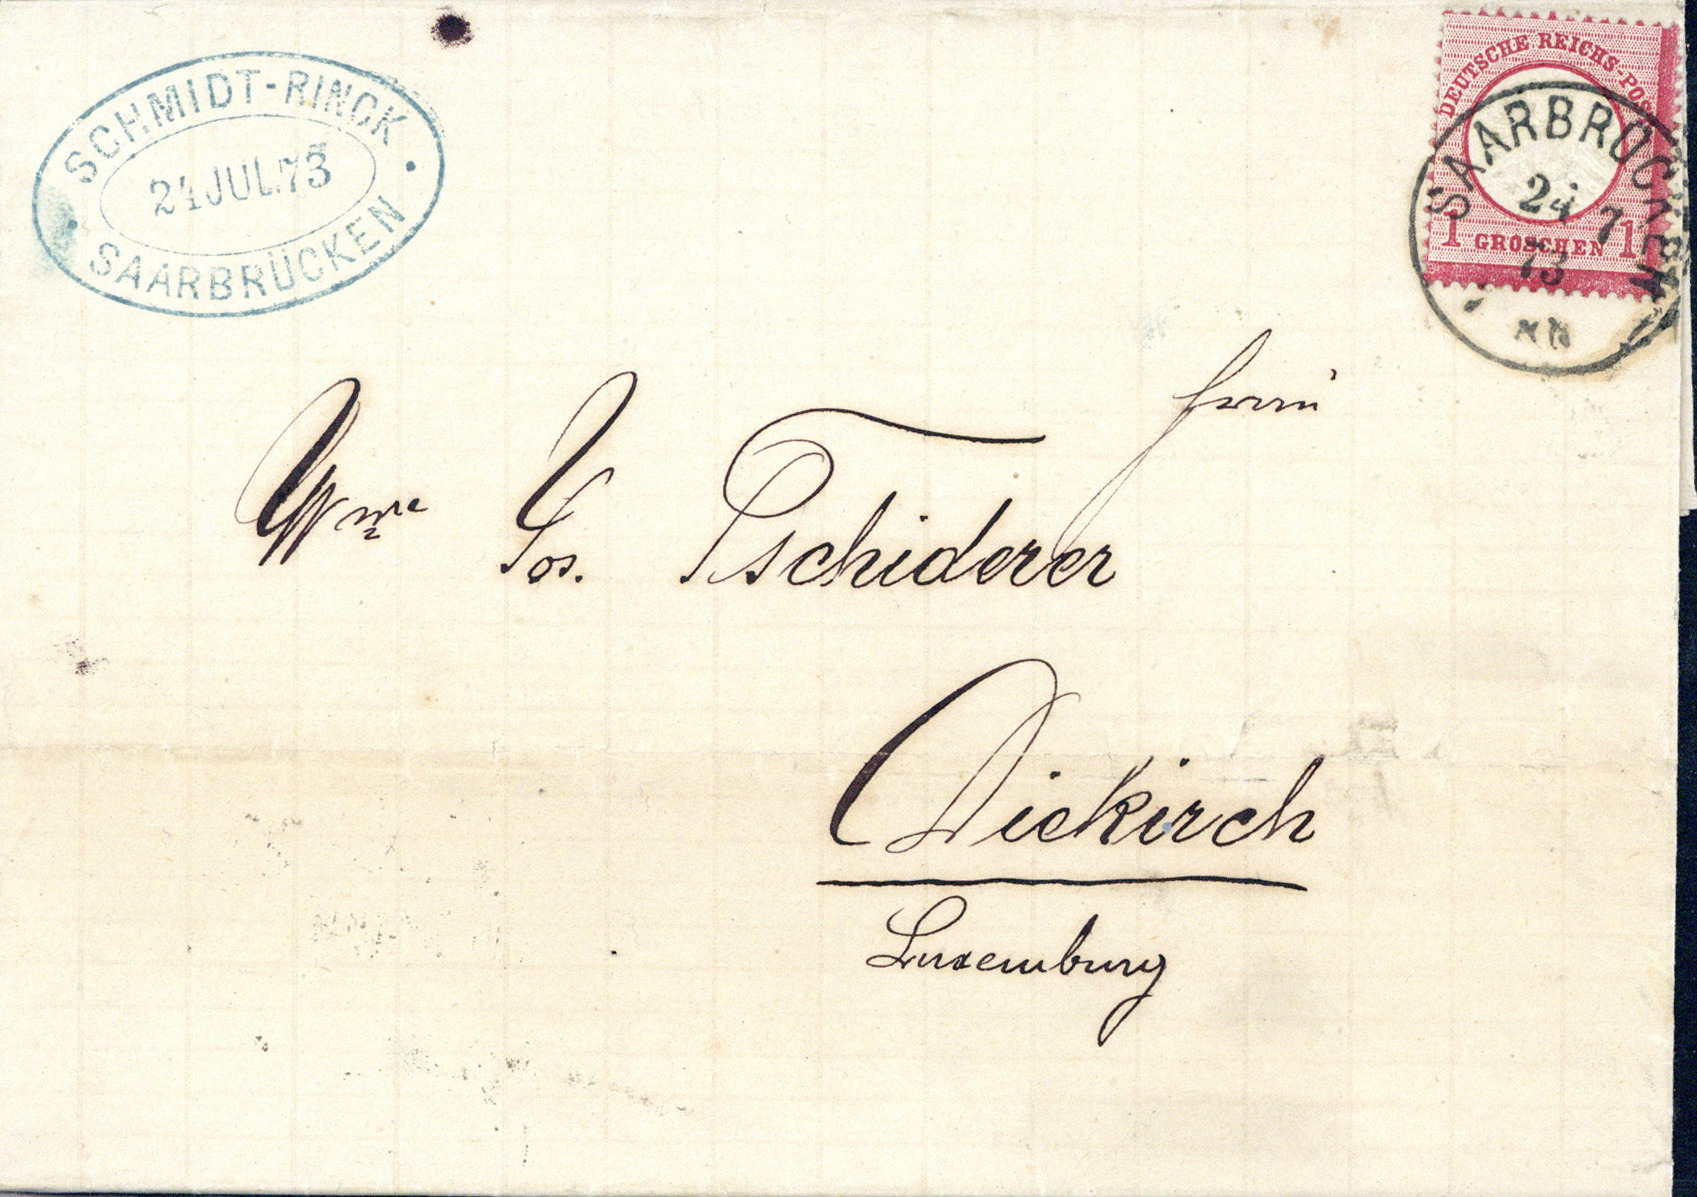 SCHMIDT-RINCK
24 JUL.73
SAARBRÜCKEN
DEUTSCHE REICHS-POST
1 GROSCHEN 1
SAARBRÜCKEN
24 7
73
Wwe
Jos. Tschiderer
Diekirch
Luxemburg